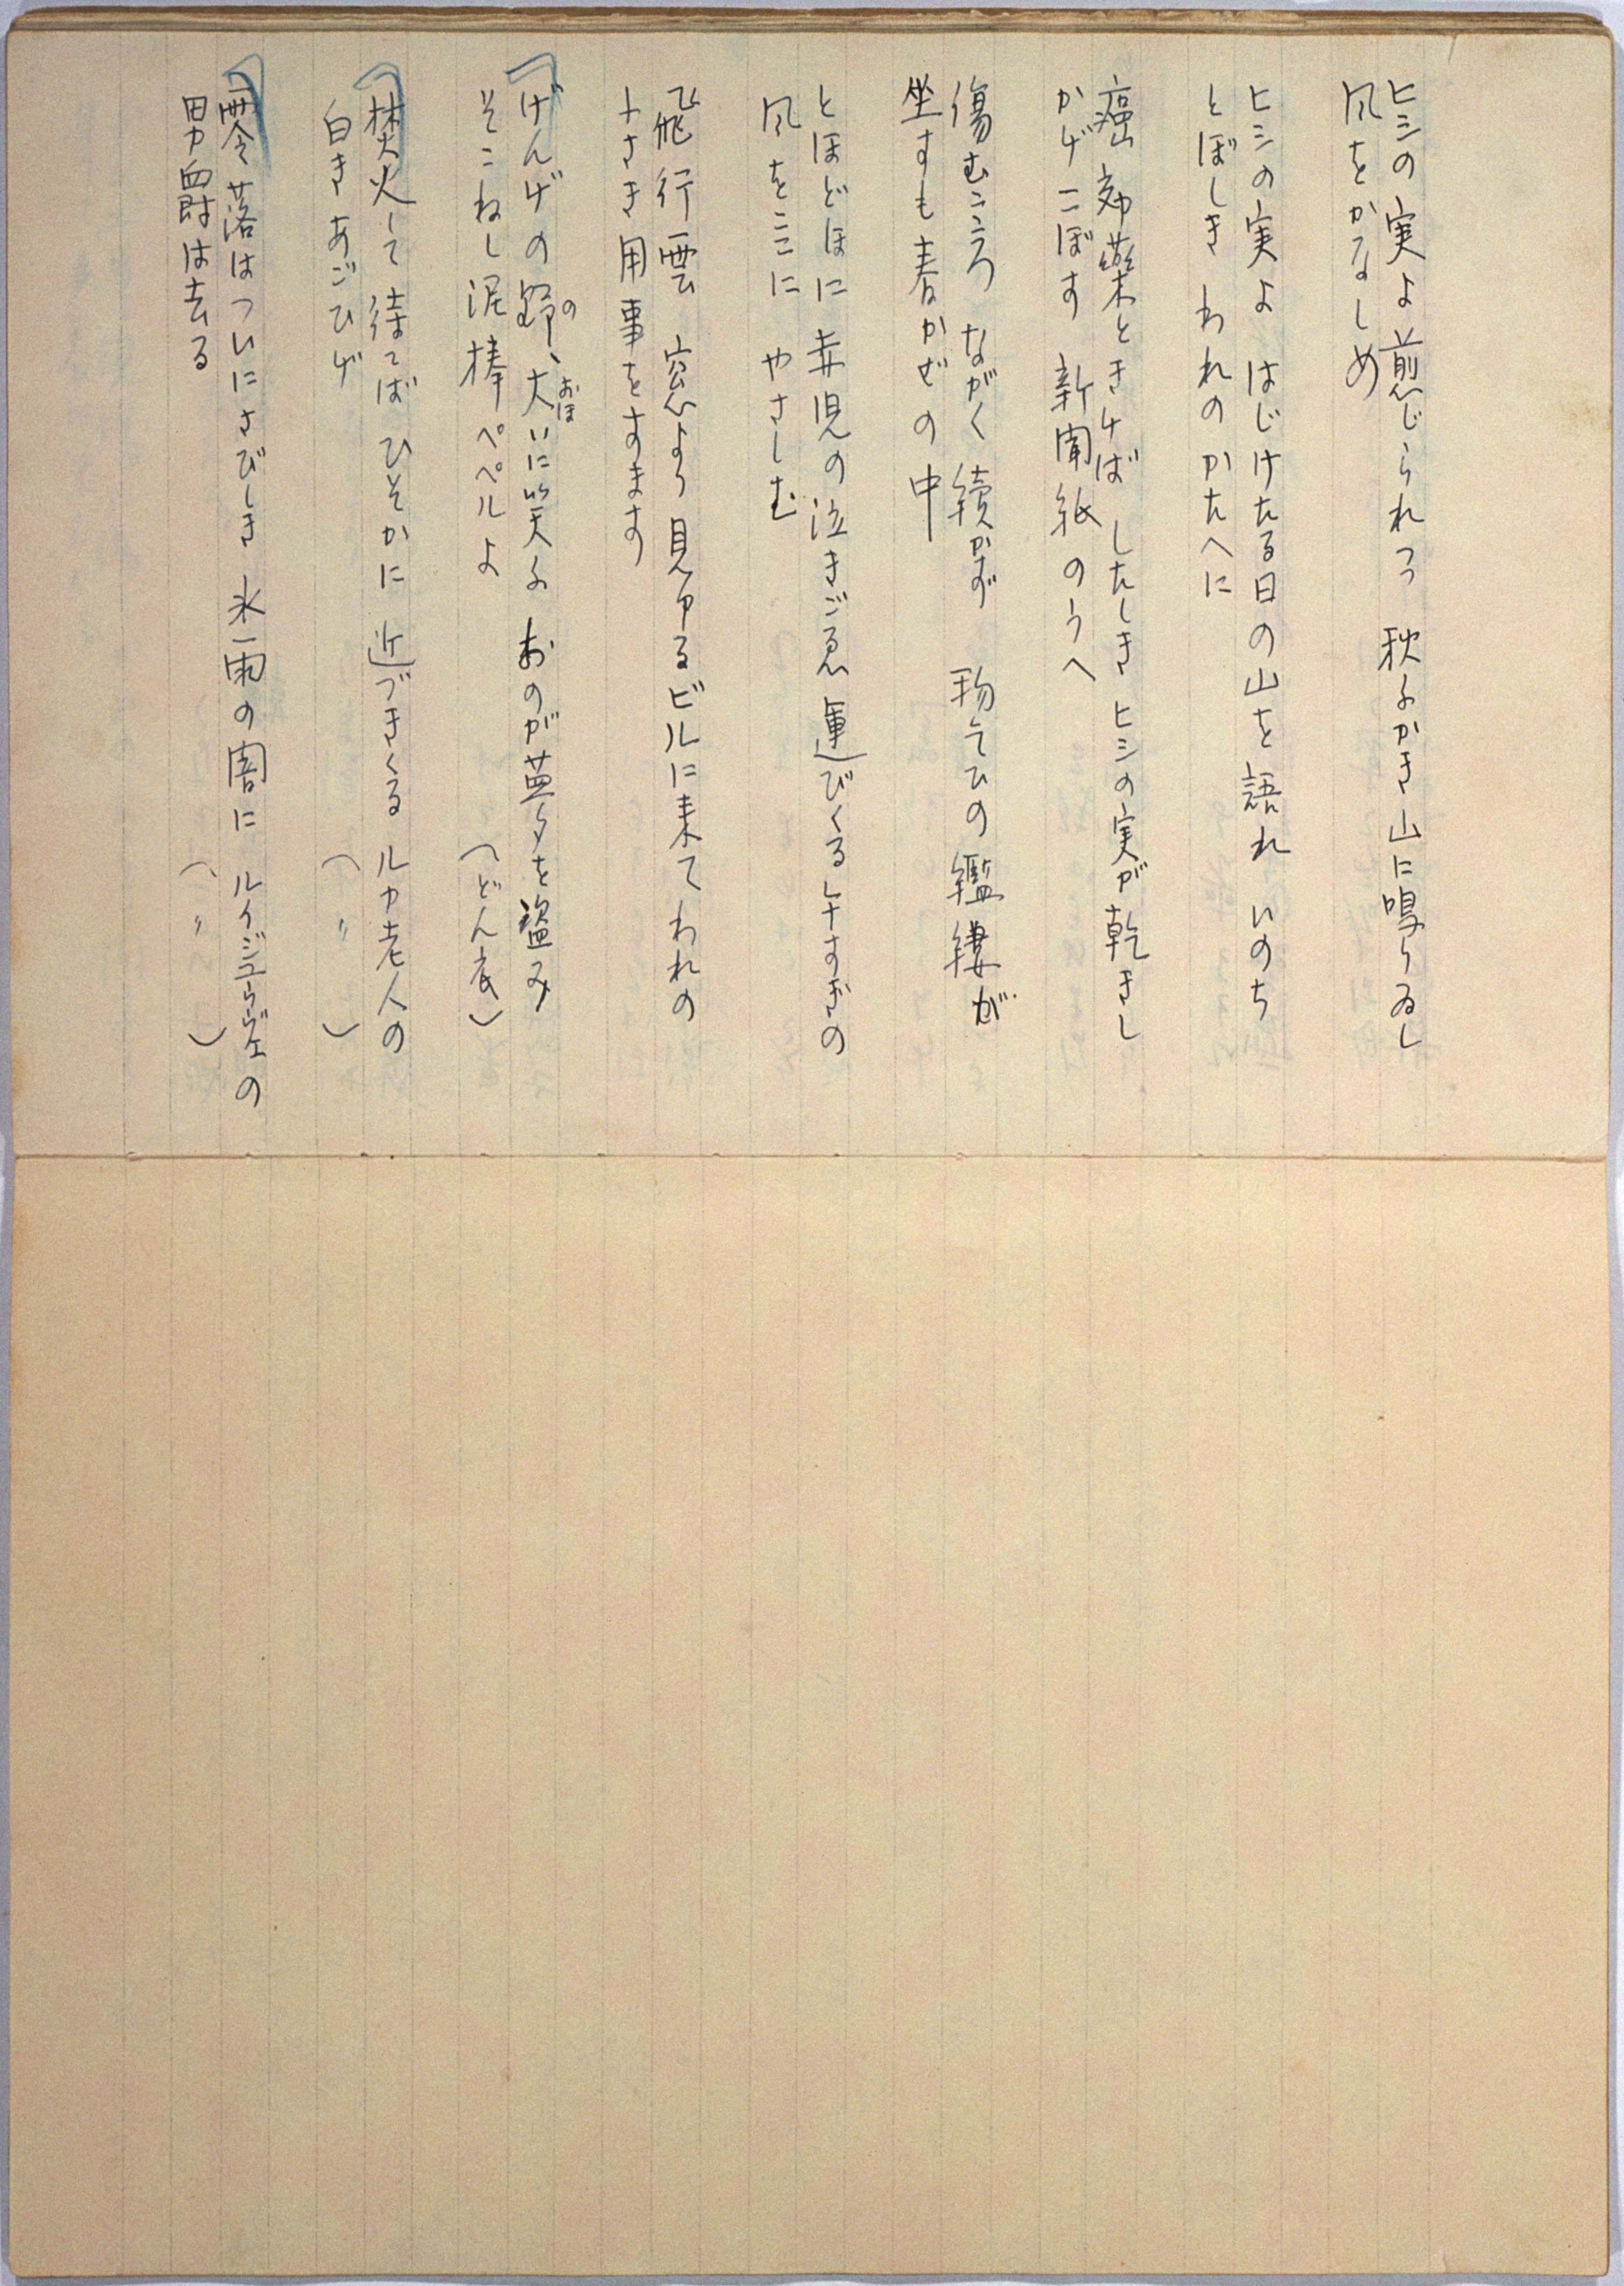 ヒシの実よ煎じられつつ 秋ふかき山に鳴りゐし
風をかなしめ
ヒシの実よ はじけたる日の山を語れ いのち
とぼしき われのかたへに
癌効薬ときけば したしきヒシの実が乾きし
かげこぼす 新聞紙のうへ
傷むこころ ながく続かず 物乞ひの襤褸が
坐すも春かぜの中
とほどほに赤児の泣きごゑ運びくる午すぎの
風をここに やさしむ
飛行雲 窓より見ゆるビルに来てわれの
小さき用事をすます
げんげの野、大いに笑ふ おのが芸夕を盗み
の
おほ
そこねし泥棒ペペルよ (どん底)
焚火して待てば ひそかに近づきくる ルカ老人の
白きあごひげ (〃)
零落はついにさびしき 氷雨の闇に ルイジュウヴェの
男爵は去る (〃)